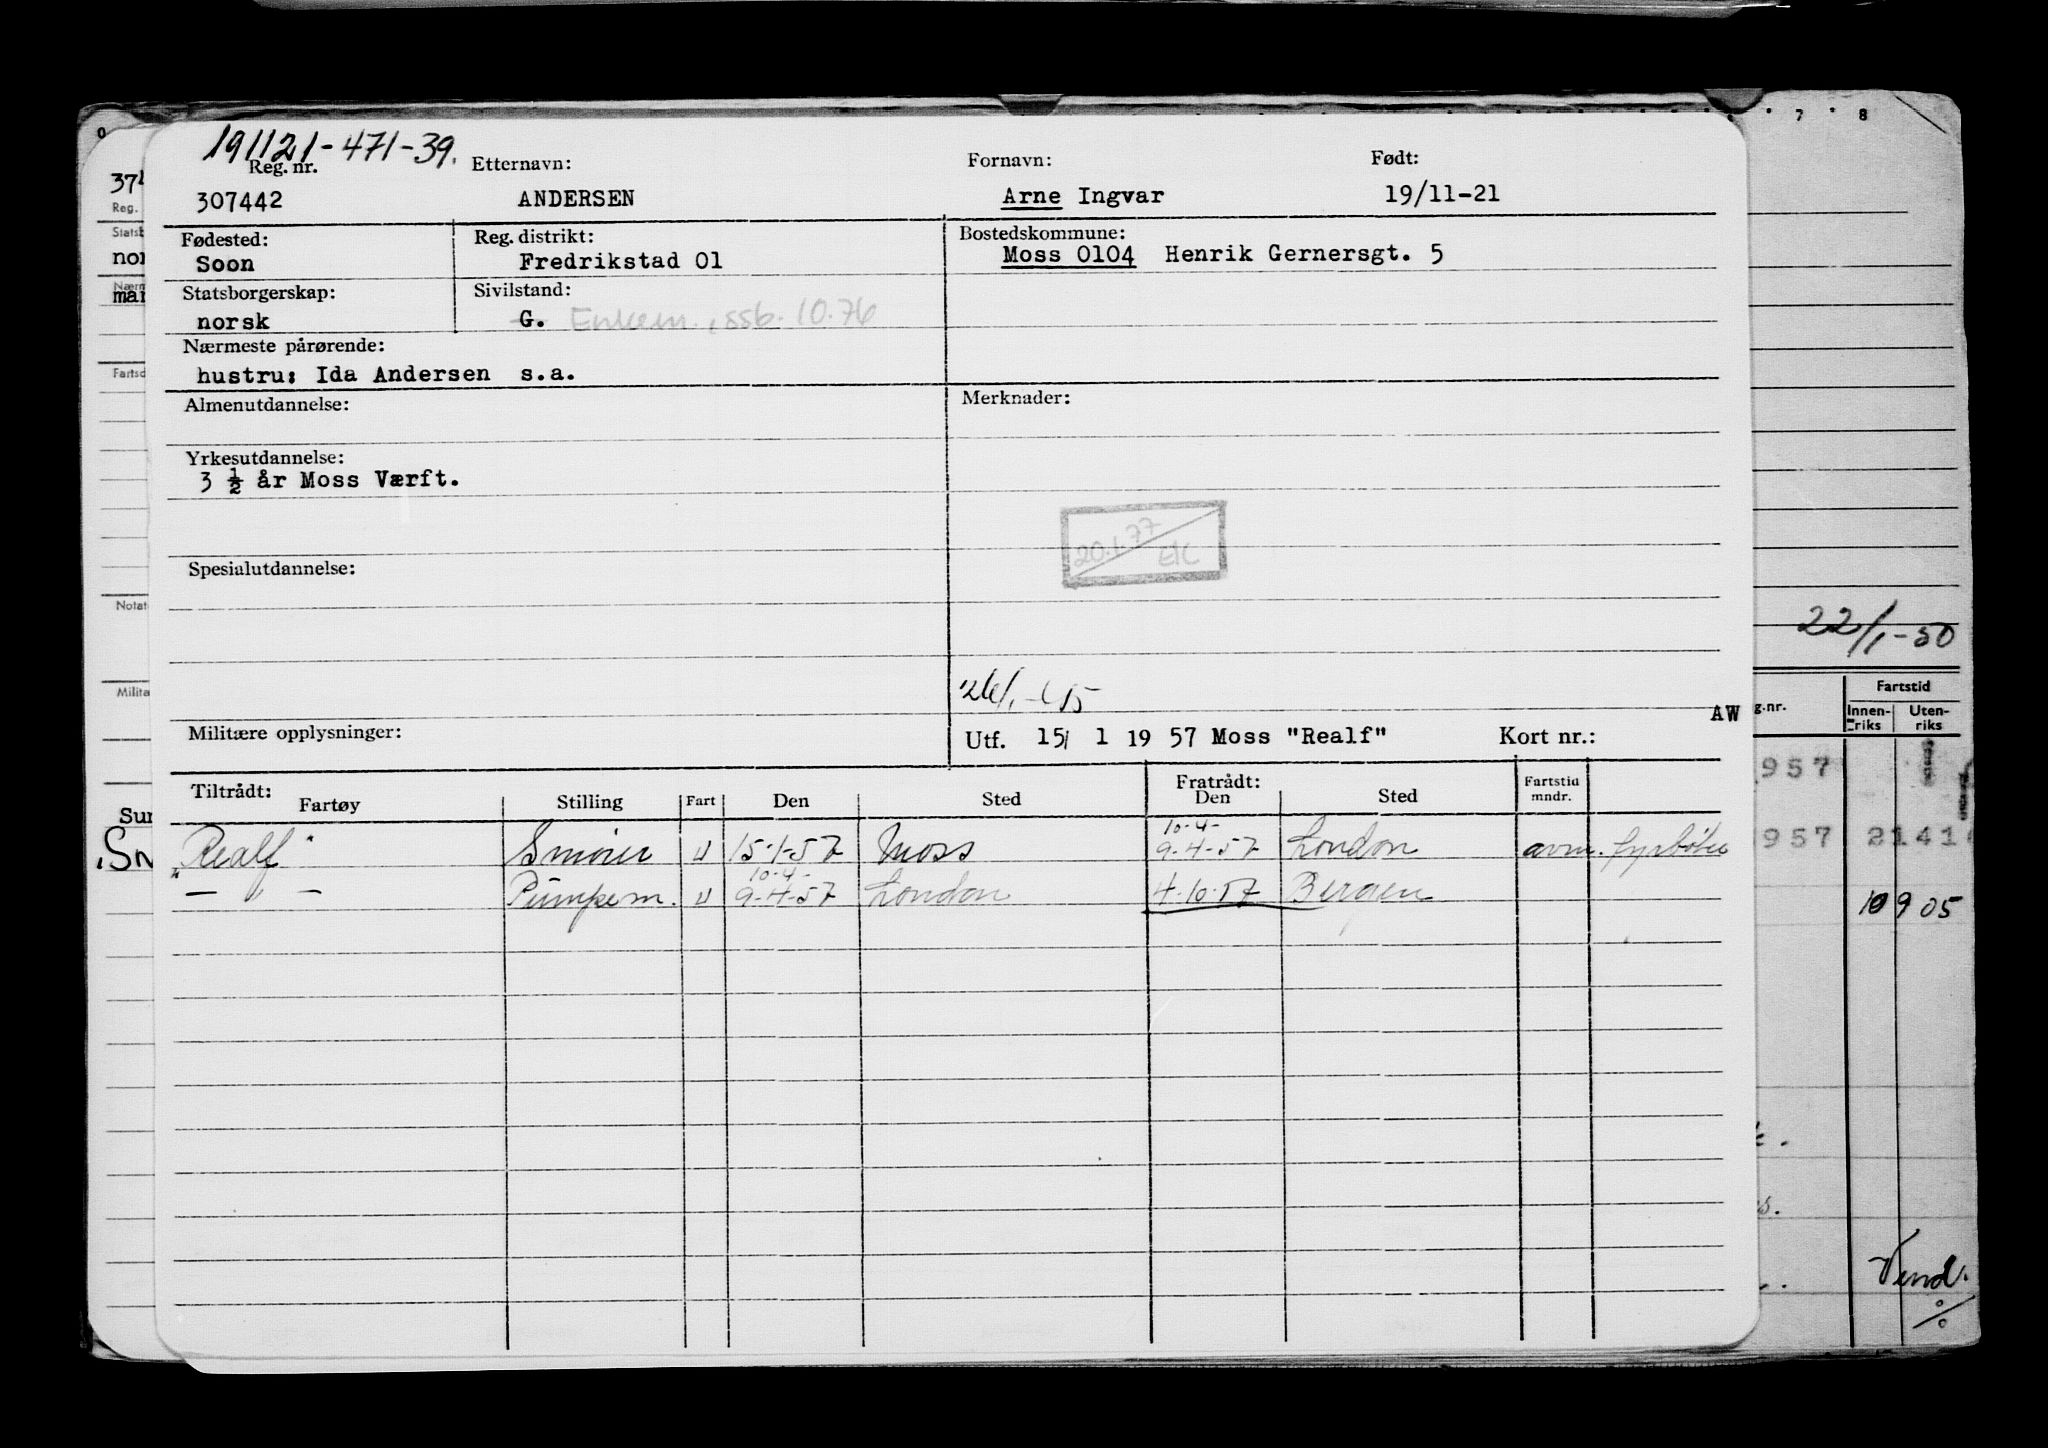 191121-471-39.
Reg. nr. Etternavn: Fornavn: Født:
307442 ANDERSEN Arne Ingvar 19/11-21
Fødested: Reg. distrikt: Bostedskommune:
Soon Fredrikstad 01 Moss 0104 Henrik Gernersgt. 5
Statsborgerskap: Sivilstand:
norsk G. Enkem. ssb. 10.76
Nærmeste pårørende:
hustru: Ida Andersen s.a.
Almenutdannelse: Merknader:
Yrkesutdannelse:
3 ½ år Moss Værft.
20.1.77 EK
Spesialutdannelse:
Militære opplysninger: Utf. 15/ 1 19 57 Moss "Realf" Kort nr.:
AW
Tiltrådt: Fratrådt:
Fartøy Stilling Fart Den Sted Den Sted Fartstid mndr.
10-4-
„Realf" Smører U 15-1-57 Moss 9-4-57 London avm. fyrbøter
10-4-
— " — Pumpem. U 9-4-57 London 4-10-57 Bergen
0 7 8
Reg.
Notat
22/1-50
Fartstid
g.nr. Innen-riks Uten-riks
957
1957 21 41
10 9 05
Vend.